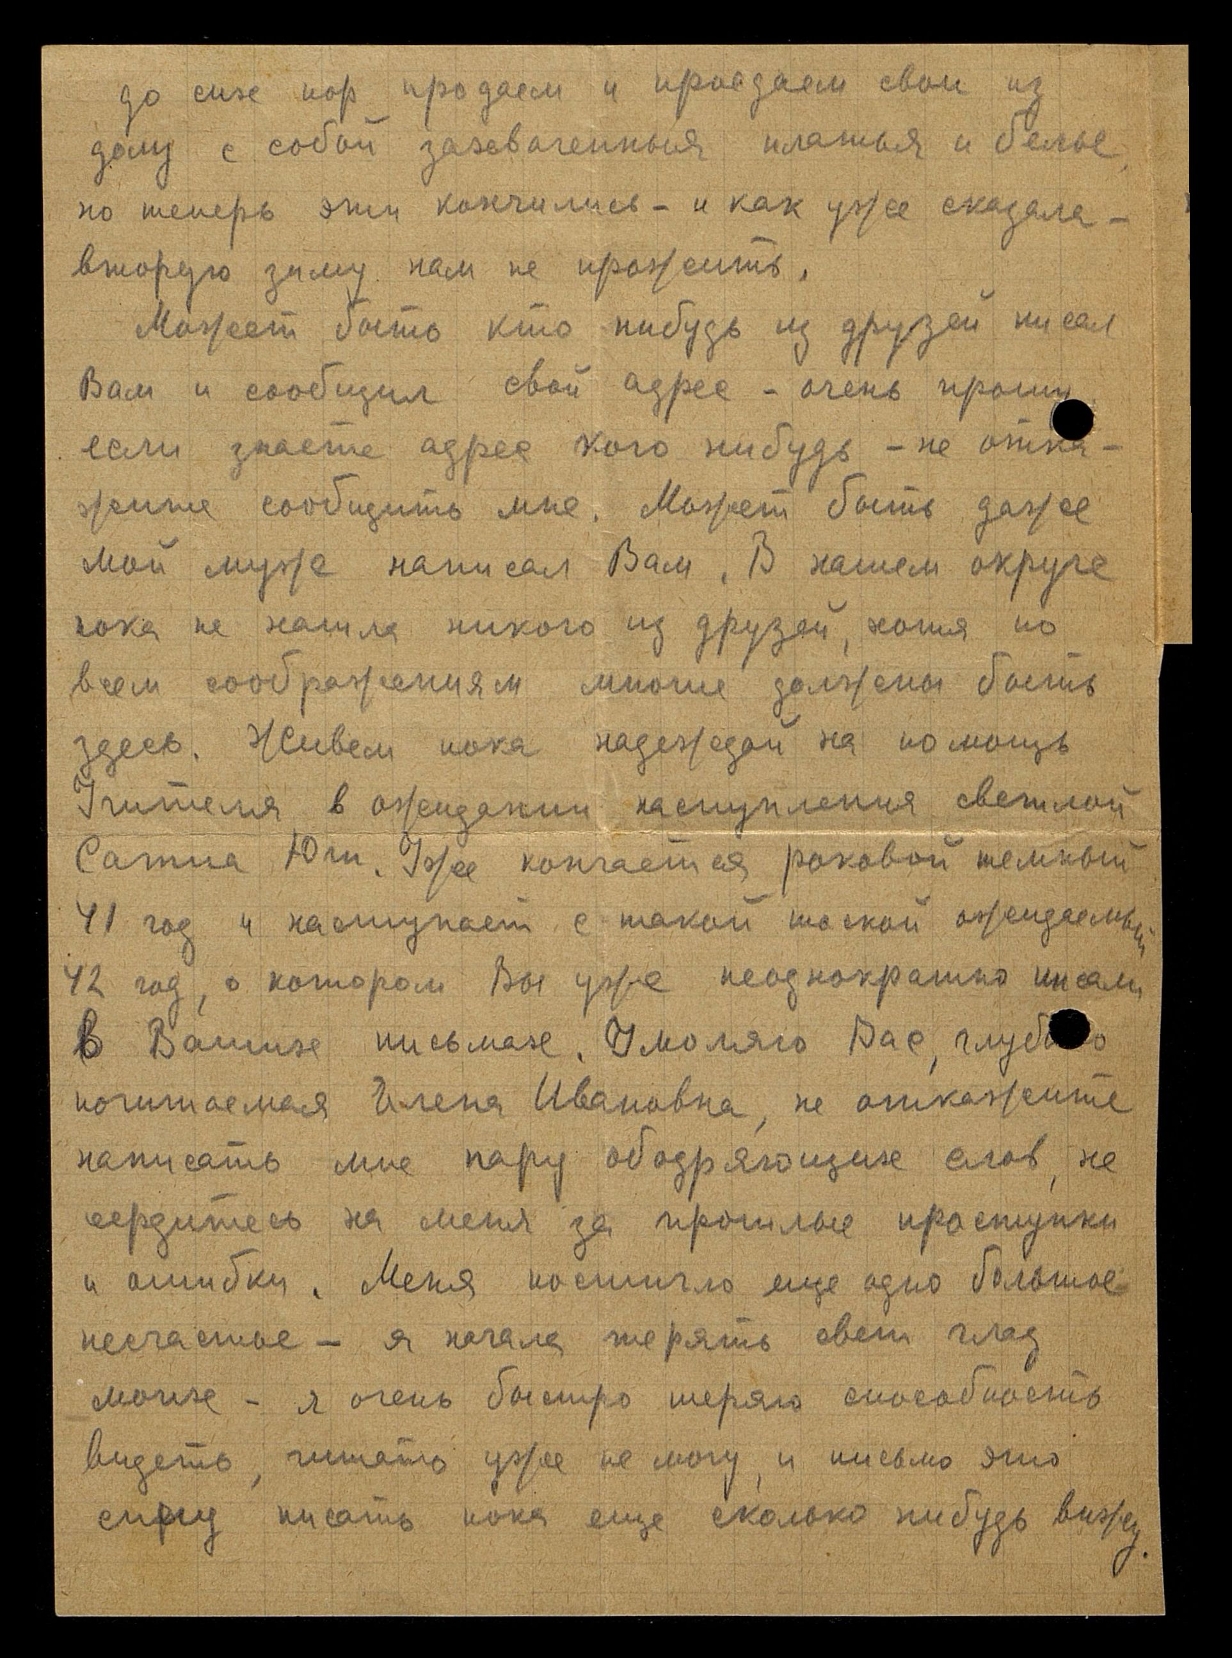 до сих пор продаем и проедаем свои из
дому с собой захваченныя платья и белье,
но теперь эти кончились - и как уже сказала -
вторую зиму нам не прожить.
Может быть кто нибудь из друзей писал
Вам и сообщил свой адрес - очень прошу
если знаете адрес кого нибудь - не отка-
жите сообщить мне. Может быть даже
мой муж написал Вам. В нашем округе
пока не нашла никого из друзей, хотя по
всем соображениям многие должны быть
здесь. Живем пока надеждой на помощь
Учителя в ожидании наступления светлой
Сатиа Юги. Уже кончается роковой темный
41 год и наступает с такой тоской ожидаемый
42 год, о котором Вы уже неоднократно писали
в Ваших письмах. Умоляю Вас, глубоко
почитаемая Елена Ивановна, не откажите
написать мне пару ободряющих слов, не
сердитесь на меня за прошлые проступки
и ошибки. Меня постигло еще одно большое
несчастье - я начала терять свет глаз
моих - я очень быстро теряю способность
видеть, читать уже не могу, и письмо это
спешу писать пока еще сколько нибудь вижу.